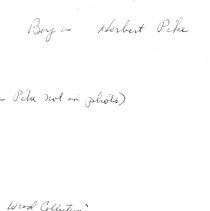 Boy is Herbert Pike
Pike not in photo)
Wood Collection"